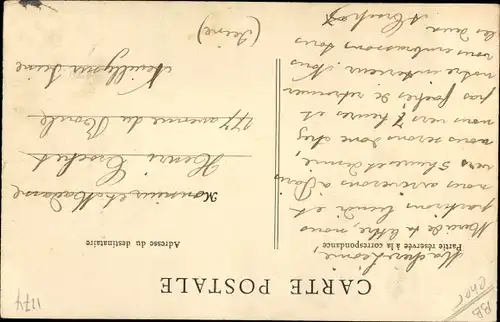 CARTE POSTALE
Partie réservée à la correspondance
Adresse du destinataire
Ma chère Léonie,
Merci de ta lettre, nous
partirons lundi et
nous arriverons à Paris
vers 5 heures et demie,
nous serons donc chez
nous vers 7 heures et
pas fâchés de retrouver
notre intérieur. Nous
vous embrassons tous
les deux
Monsieur et Madame
Henri Crochet
177 avenue du Roule
Neuilly sur Seine
(Seine)
1174